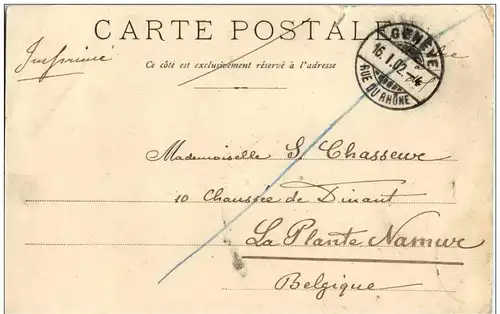 CARTE POSTALE
Imprimé
Ce côté est exclusivement réservé à l'adresse
GENÈVE
16.I.02.-4
RUE DU RHÔNE
Mademoiselle S. Chasseur
10 Chaussée de Dinant
La Plante Namur
Belgique